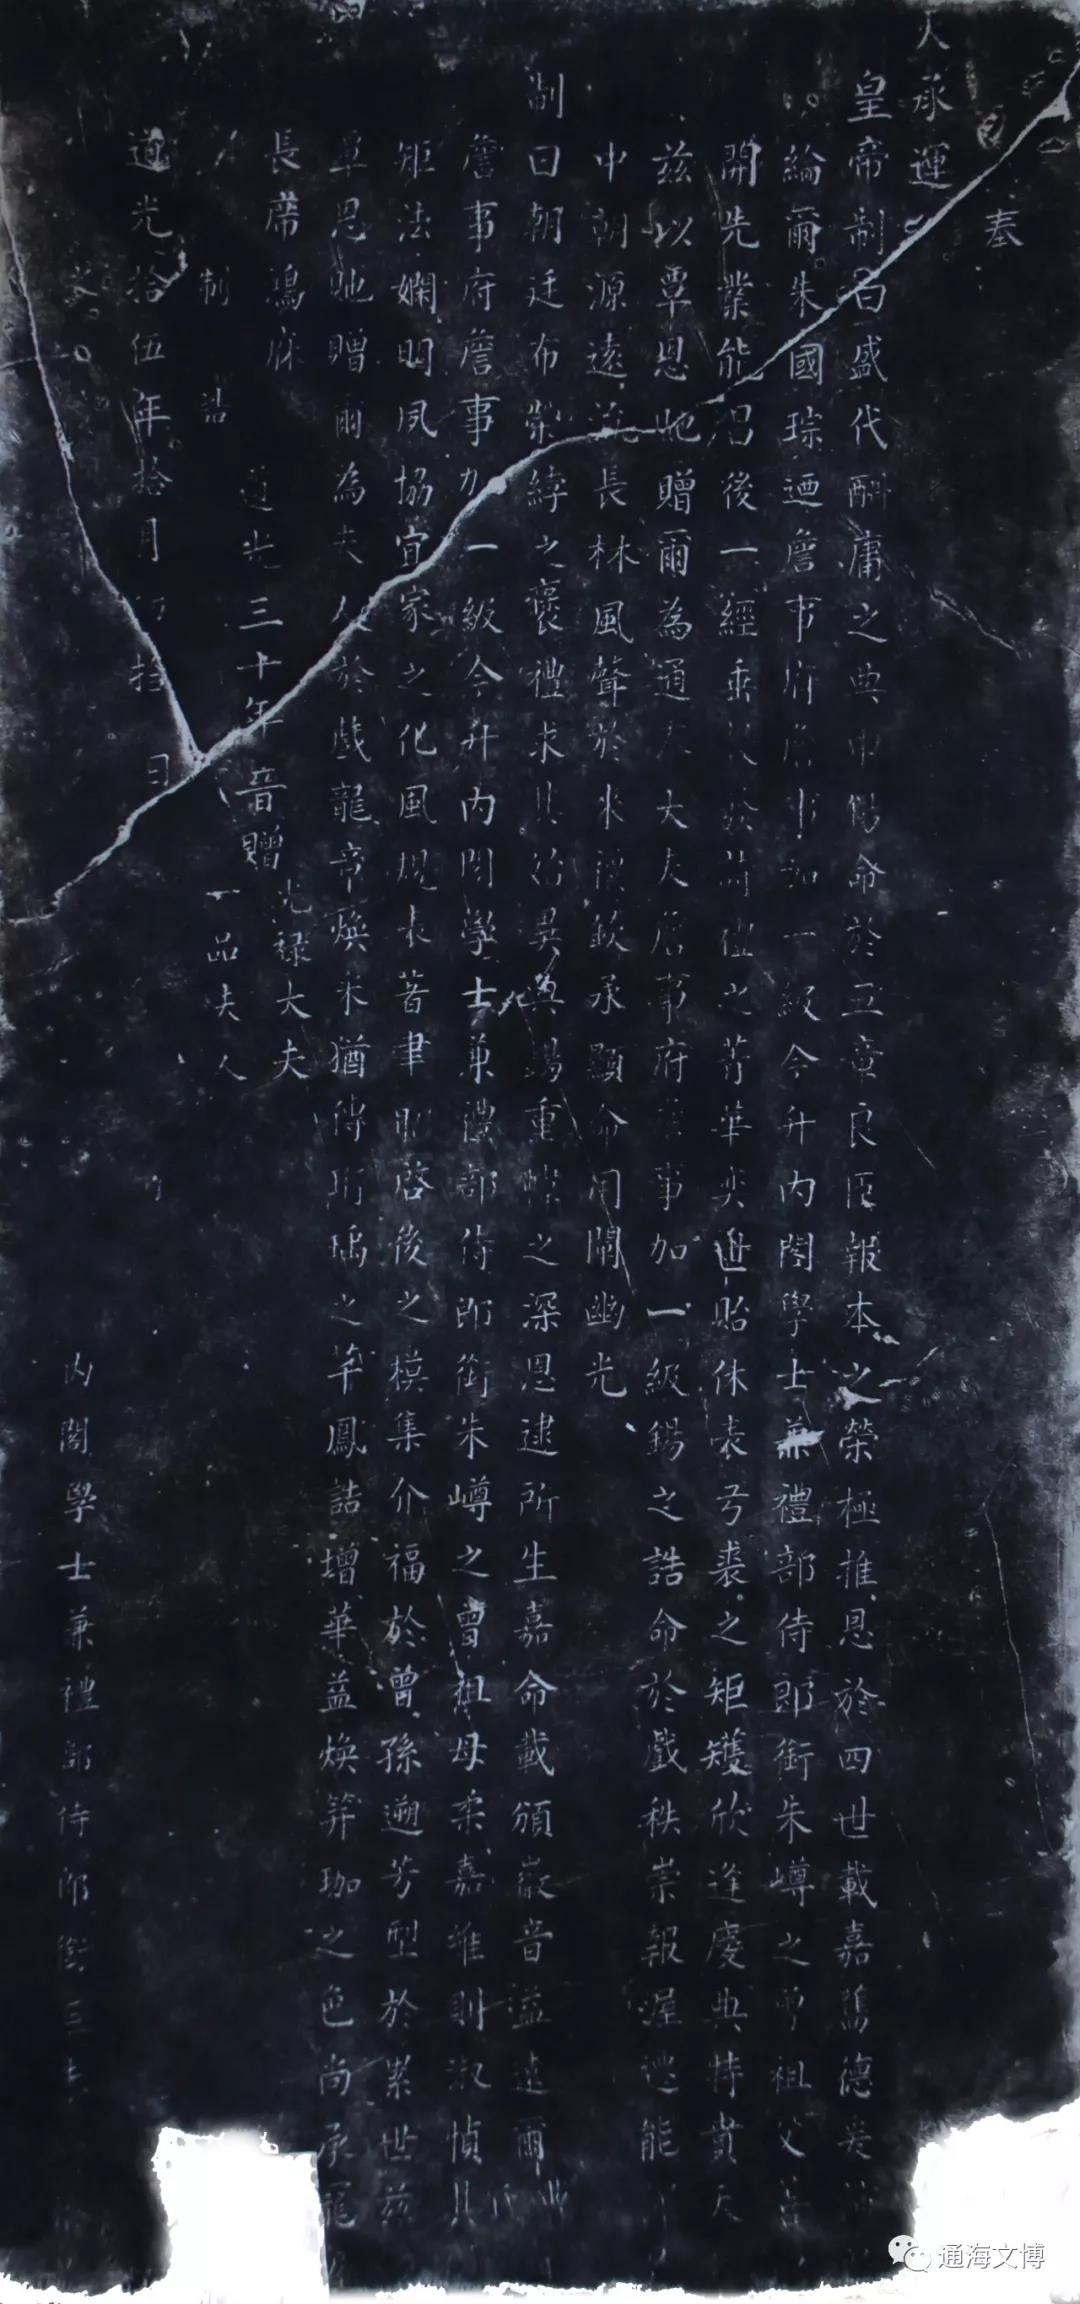 奉
天承運
皇帝制曰盛代酬庸之典申錫命於三章良臣報本之榮極推恩於四世載嘉舊德爰
綸爾朱國琮迺詹事府詹事加一級今升內閣學士兼禮部侍郎銜朱嶟之曾祖父
開先業能昌後一經垂之菁華奕世貽休表弓裘之矩矱欣逢慶典特賁天
茲以覃恩貤贈爾為通大夫詹事府詹事加一級錫之誥命於戲秩崇報渥遞能
中朝源遠流長林風聲於來欽承顯命用闡幽光
制曰朝廷布榮綍之褒禮求其重之深恩逮所生嘉命載頒徽音溢遠爾
詹事府詹事加一級今升內閣學士兼禮部侍郎銜朱嶟之曾祖母柔嘉維則淑慎其
矩法嫻明夙協宜家之化風規表著聿昭啓後之模集介福於曾孫遡芳型於累世茲
覃恩貤贈爾為夫人於戲龍章煥采猶傳珩瑀之年鳳誥增華益煥笄珈之色尚承寵
長席鴻庥
制誥
道光三十年晉贈光祿大夫
一品夫人
道光拾伍年拾月拾日
內閣學士兼禮部侍郎銜
通海文博